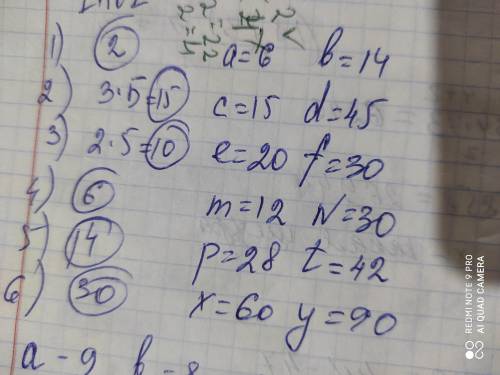 1) 2 a=6 b=14
2) 3·5=15 c=15 d=45
3) 2·5=10 e=20 f=30
4) 6 m=12 N=30
5) 14 p=28 t=42
6) 30 x=60 y=90
a-9
REDMI NOTE 9 PRO
AI QUAD CAMERA